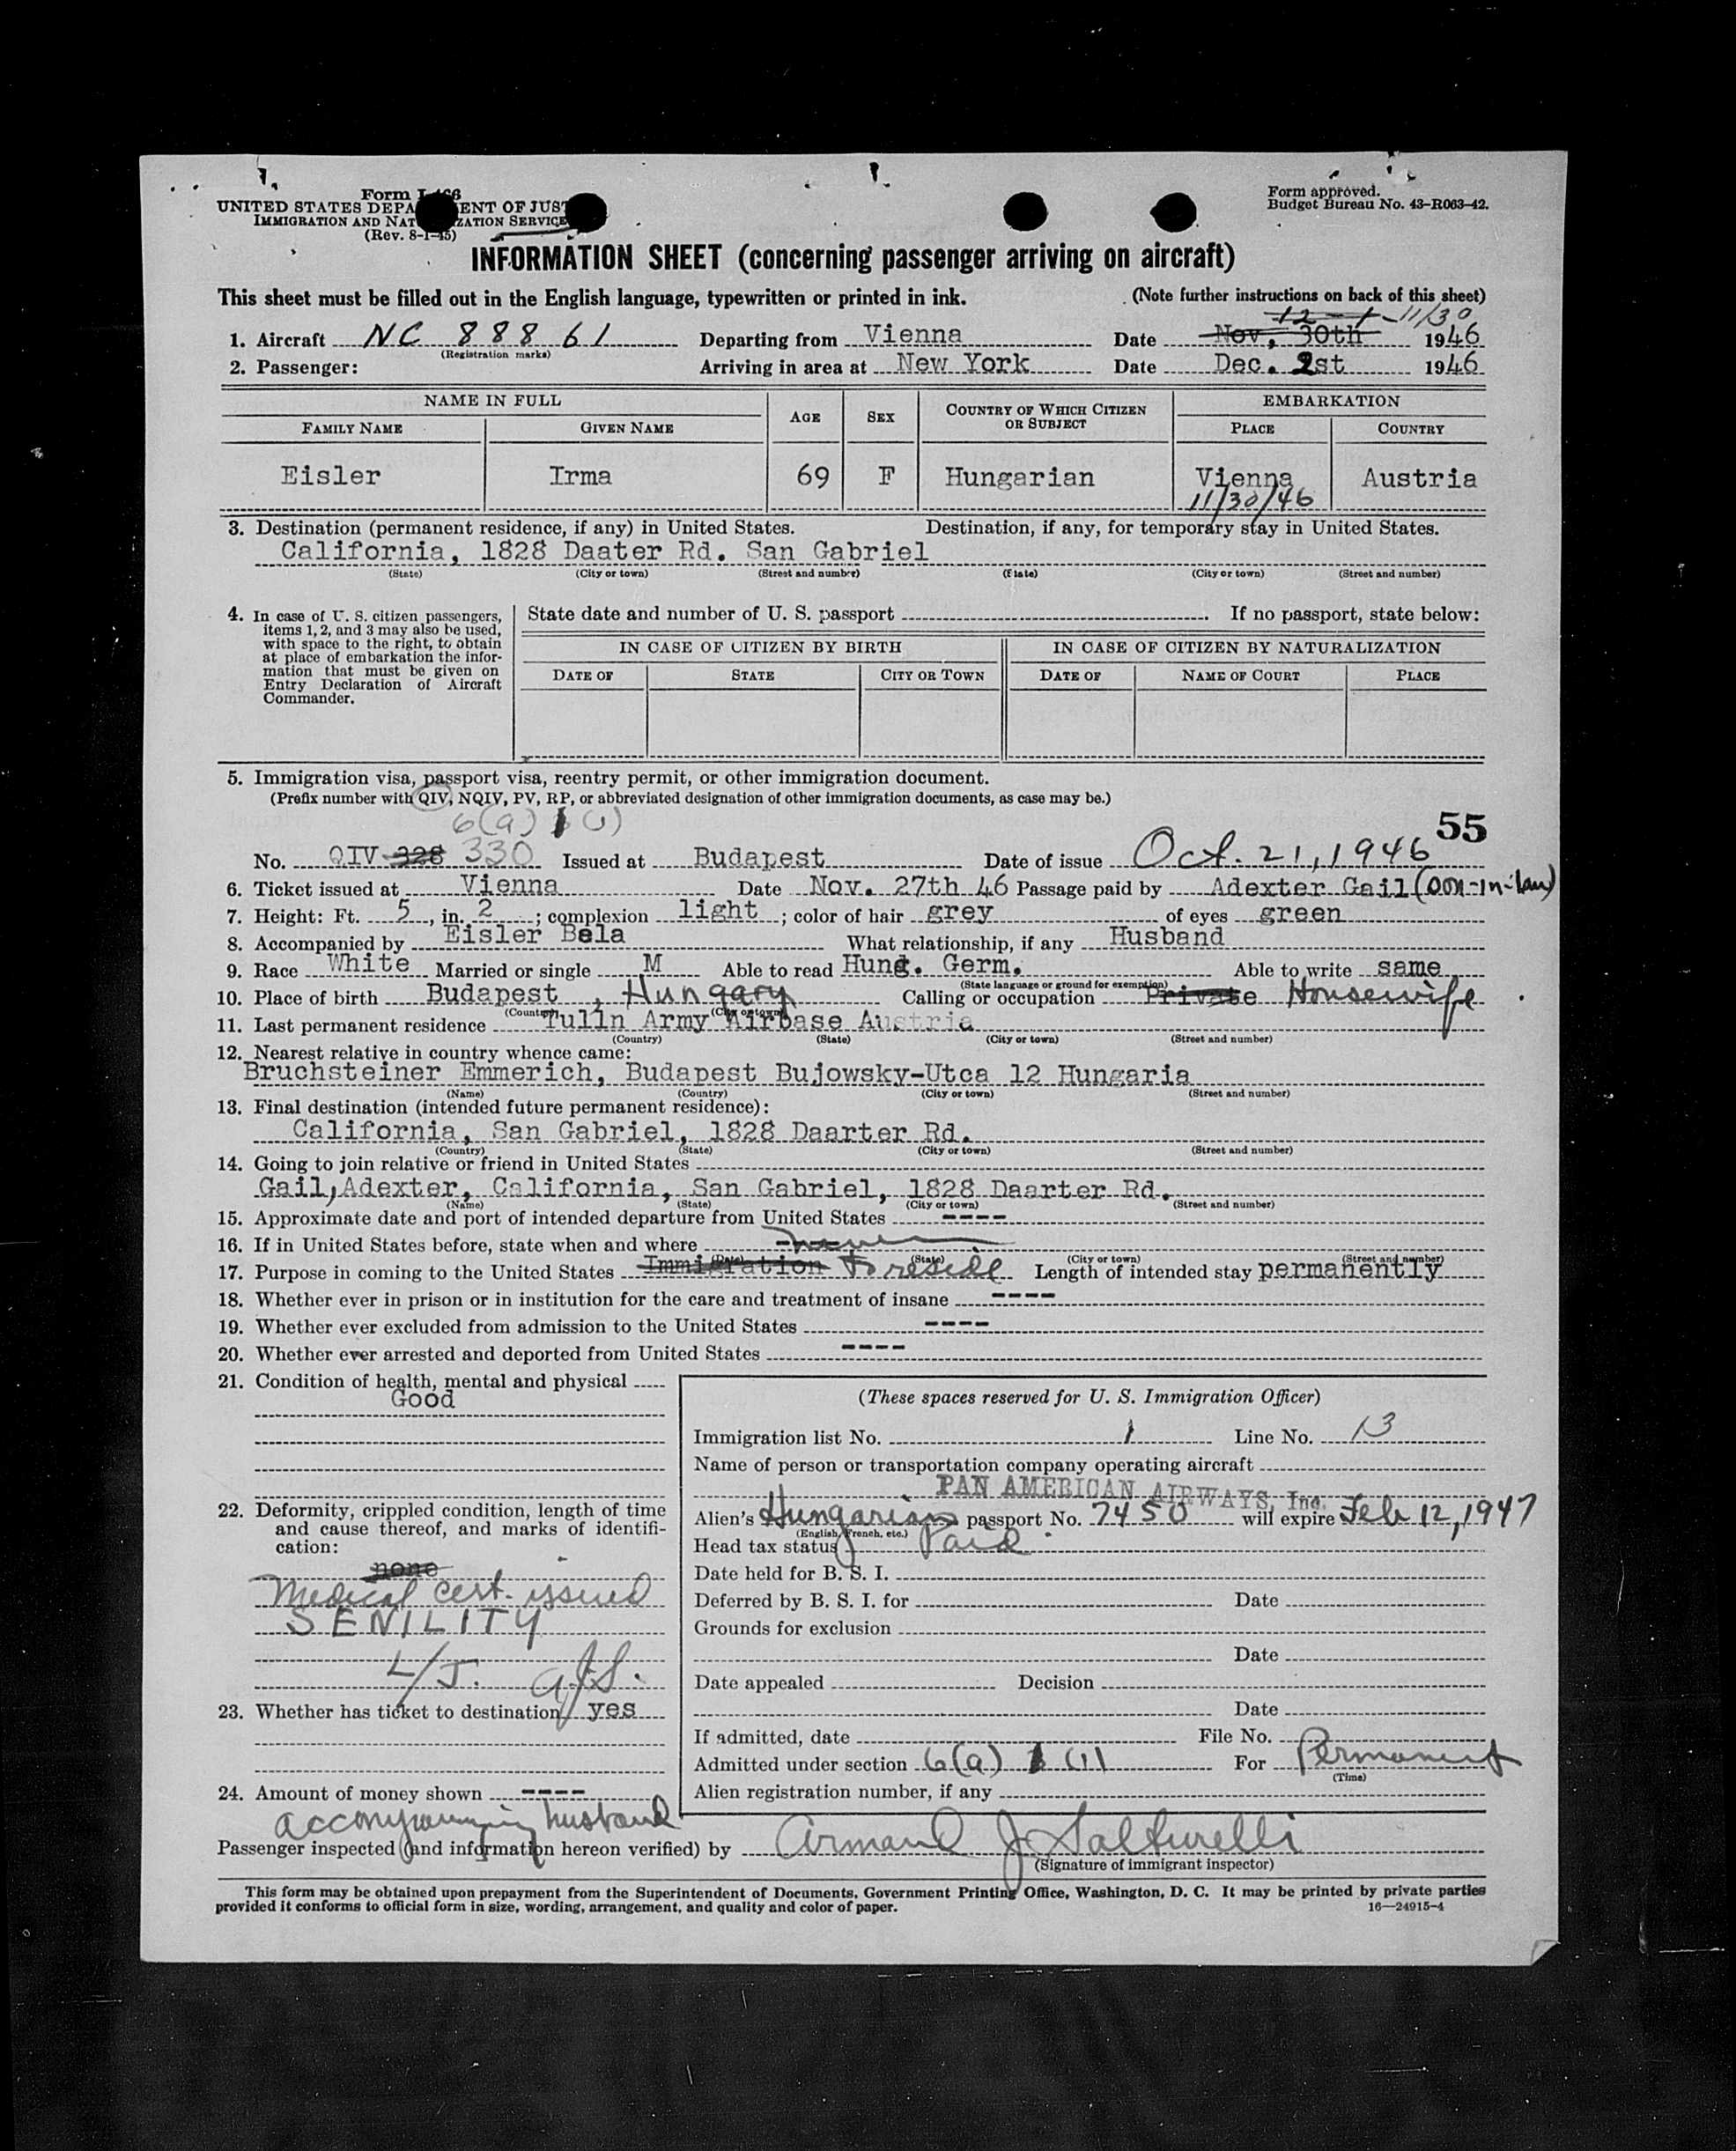 Form I-466
UNITED STATES DEPA ENT OF JUST
IMMIGRATION AND NAT ZATION SERVICE
(Rev. 8-1-45)
Form approved.
Budget Bureau No. 43-R063-42.
INFORMATION SHEET (concerning passenger arriving on aircraft)
This sheet must be filled out in the English language, typewritten or printed in ink. (Note further instructions on back of this sheet)
12-1-11/30
1. Aircraft NC 88861 Departing from Vienna Date Nov. 30th 1946
(Registration marks)
2. Passenger: Arriving in area at New York Date Dec. 2st 1946
NAME IN FULL AGE SEX COUNTRY OF WHICH CITIZEN OR SUBJECT EMBARKATION
FAMILY NAME GIVEN NAME PLACE COUNTRY
Eisler Irma 69 F Hungarian Vienna Austria
11/30/46
3. Destination (permanent residence, if any) in United States. Destination, if any, for temporary stay in United States.
California, 1828 Daater Rd. San Gabriel
(State) (City or town) (Street and number) (State) (City or town) (Street and number)
4. In case of U. S. citizen passengers, items 1, 2, and 3 may also be used, with space to the right, to obtain at place of embarkation the information that must be given on Entry Declaration of Aircraft Commander.
State date and number of U. S. passport If no passport, state below:
IN CASE OF CITIZEN BY BIRTH IN CASE OF CITIZEN BY NATURALIZATION
DATE OF STATE CITY OR TOWN DATE OF NAME OF COURT PLACE
5. Immigration visa, passport visa, reentry permit, or other immigration document.
(Prefix number with QIV, NQIV, PV, RP, or abbreviated designation of other immigration documents, as case may be.)
6(a) (1)
55
No. QIV 328 330 Issued at Budapest Date of issue Oct. 21, 1946
6. Ticket issued at Vienna Date Nov. 27th 46 Passage paid by Adexter Gail (son-in-law)
7. Height: Ft. 5, in. 2; complexion light; color of hair grey of eyes green
8. Accompanied by Eisler Bela What relationship, if any Husband
9. Race White Married or single M Able to read Hung. Germ. Able to write same
(State language or ground for exemption)
10. Place of birth Budapest, Hungary Calling or occupation Private Housewife
(Country) (City or town)
11. Last permanent residence Tulln Army Airbase Austria
(Country) (State) (City or town) (Street and number)
12. Nearest relative in country whence came:
Bruchsteiner Emmerich, Budapest Bujowsky-Utca 12 Hungaria
(Name) (Country) (City or town) (Street and number)
13. Final destination (intended future permanent residence):
California, San Gabriel, 1828 Daarter Rd.
(Country) (State) (City or town) (Street and number)
14. Going to join relative or friend in United States
Gail, Adexter, California, San Gabriel, 1828 Daarter Rd.
(Name) (State) (City or town) (Street and number)
15. Approximate date and port of intended departure from United States ----
16. If in United States before, state when and where ---- never
(Date) (State) (City or town) (Street and number)
17. Purpose in coming to the United States Immigration To reside Length of intended stay permanently
18. Whether ever in prison or in institution for the care and treatment of insane ----
19. Whether ever excluded from admission to the United States ----
20. Whether ever arrested and deported from United States ----
21. Condition of health, mental and physical
Good
22. Deformity, crippled condition, length of time and cause thereof, and marks of identification:
none
Medical cert. issued
SENILITY
L/J. a.J.S.
23. Whether has ticket to destination yes
24. Amount of money shown ----
accompanying husband
(These spaces reserved for U. S. Immigration Officer)
Immigration list No. 1 Line No. 13
Name of person or transportation company operating aircraft
PAN AMERICAN AIRWAYS, Inc.
Alien's Hungarian passport No. 7450 will expire Feb 12, 1947
(English, French, etc.)
Head tax status Paid
Date held for B. S. I.
Deferred by B. S. I. for Date
Grounds for exclusion
Date
Date appealed Decision
Date
If admitted, date File No.
Admitted under section 6(a) (1) For Permanent
(Time)
Alien registration number, if any
Passenger inspected (and information hereon verified) by Armand J Salturelli
(Signature of immigrant inspector)
This form may be obtained upon prepayment from the Superintendent of Documents, Government Printing Office, Washington, D. C. It may be printed by private parties
provided it conforms to official form in size, wording, arrangement, and quality and color of paper. 16—24915-4